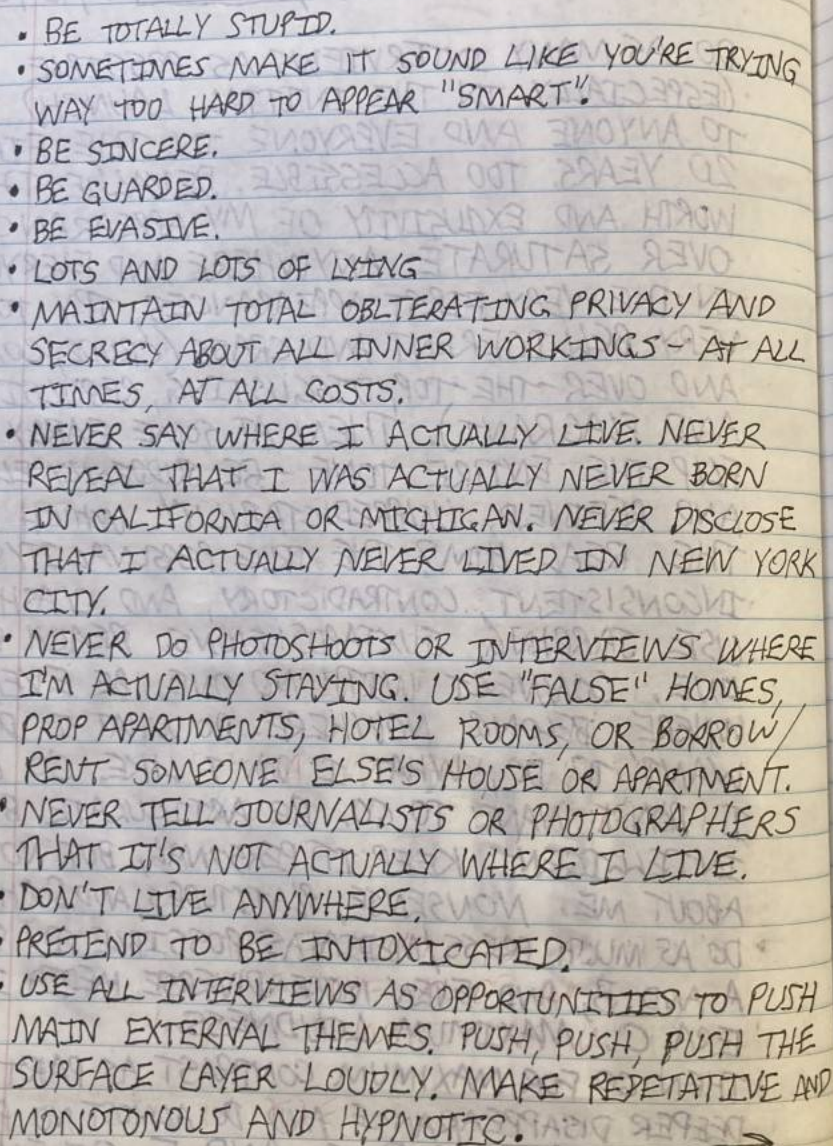 • BE TOTALLY STUPID.
• SOMETIMES MAKE IT SOUND LIKE YOU'RE TRYING
WAY TOO HARD TO APPEAR "SMART".
• BE SINCERE.
• BE GUARDED.
• BE EVASIVE.
• LOTS AND LOTS OF LYING
• MAINTAIN TOTAL OBLTERATING PRIVACY AND
SECRECY ABOUT ALL INNER WORKINGS - AT ALL
TIMES, AT ALL COSTS.
• NEVER SAY WHERE I ACTUALLY LIVE. NEVER
REVEAL THAT I WAS ACTUALLY NEVER BORN
IN CALIFORNIA OR MICHIGAN. NEVER DISCLOSE
THAT I ACTUALLY NEVER LIVED IN NEW YORK
CITY.
• NEVER DO PHOTOSHOOTS OR INTERVIEWS WHERE
I'M ACTUALLY STAYING. USE "FALSE" HOMES,
PROP APARTMENTS, HOTEL ROOMS, OR BORROW/
RENT SOMEONE ELSE'S HOUSE OR APARTMENT.
• NEVER TELL JOURNALISTS OR PHOTOGRAPHERS
THAT IT'S NOT ACTUALLY WHERE I LIVE.
• DON'T LIVE ANYWHERE.
• PRETEND TO BE INTOXICATED.
• USE ALL INTERVIEWS AS OPPORTUNITIES TO PUSH
MAIN EXTERNAL THEMES. PUSH, PUSH, PUSH THE
SURFACE LAYER LOUDLY. MAKE REPETATIVE AND
MONOTONOUS AND HYPNOTIC.